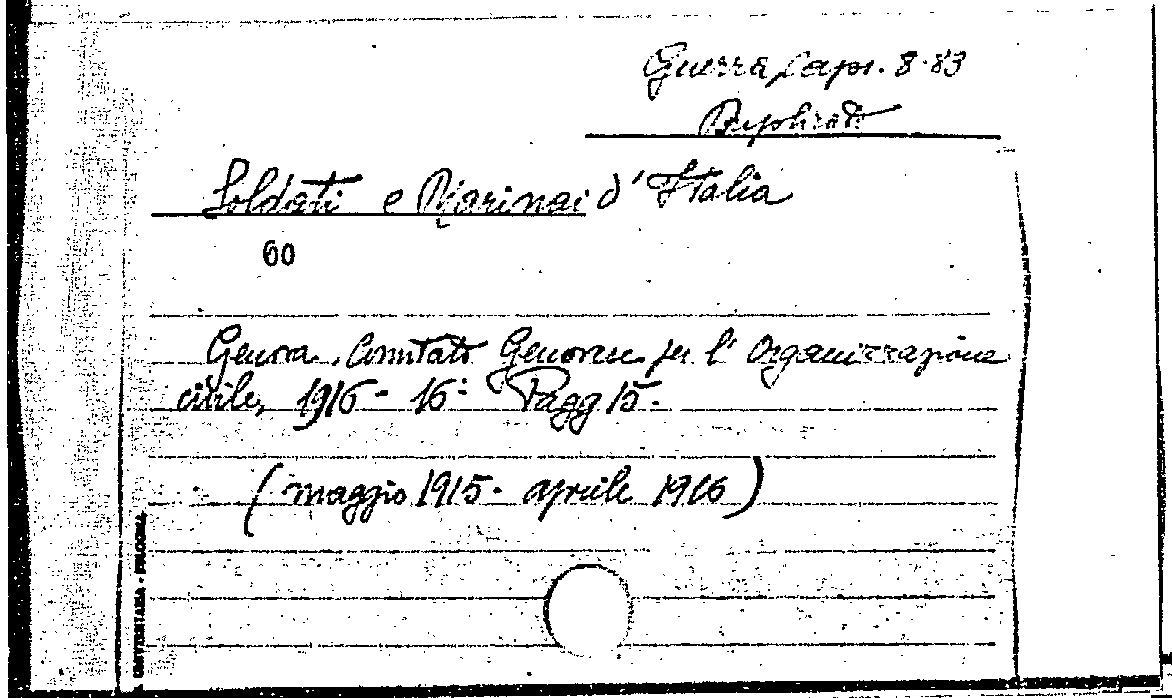 Guerra, Caps. 8.83
Duplicato
Soldati e Marinai d'Italia
60
Genova, Comitato Genovese per l'Organizzazione
civile, 1916 - 16° Pagg 15.
( maggio 1915 - aprile 1916 )
UNIVERSITARIA - BOLOGNA